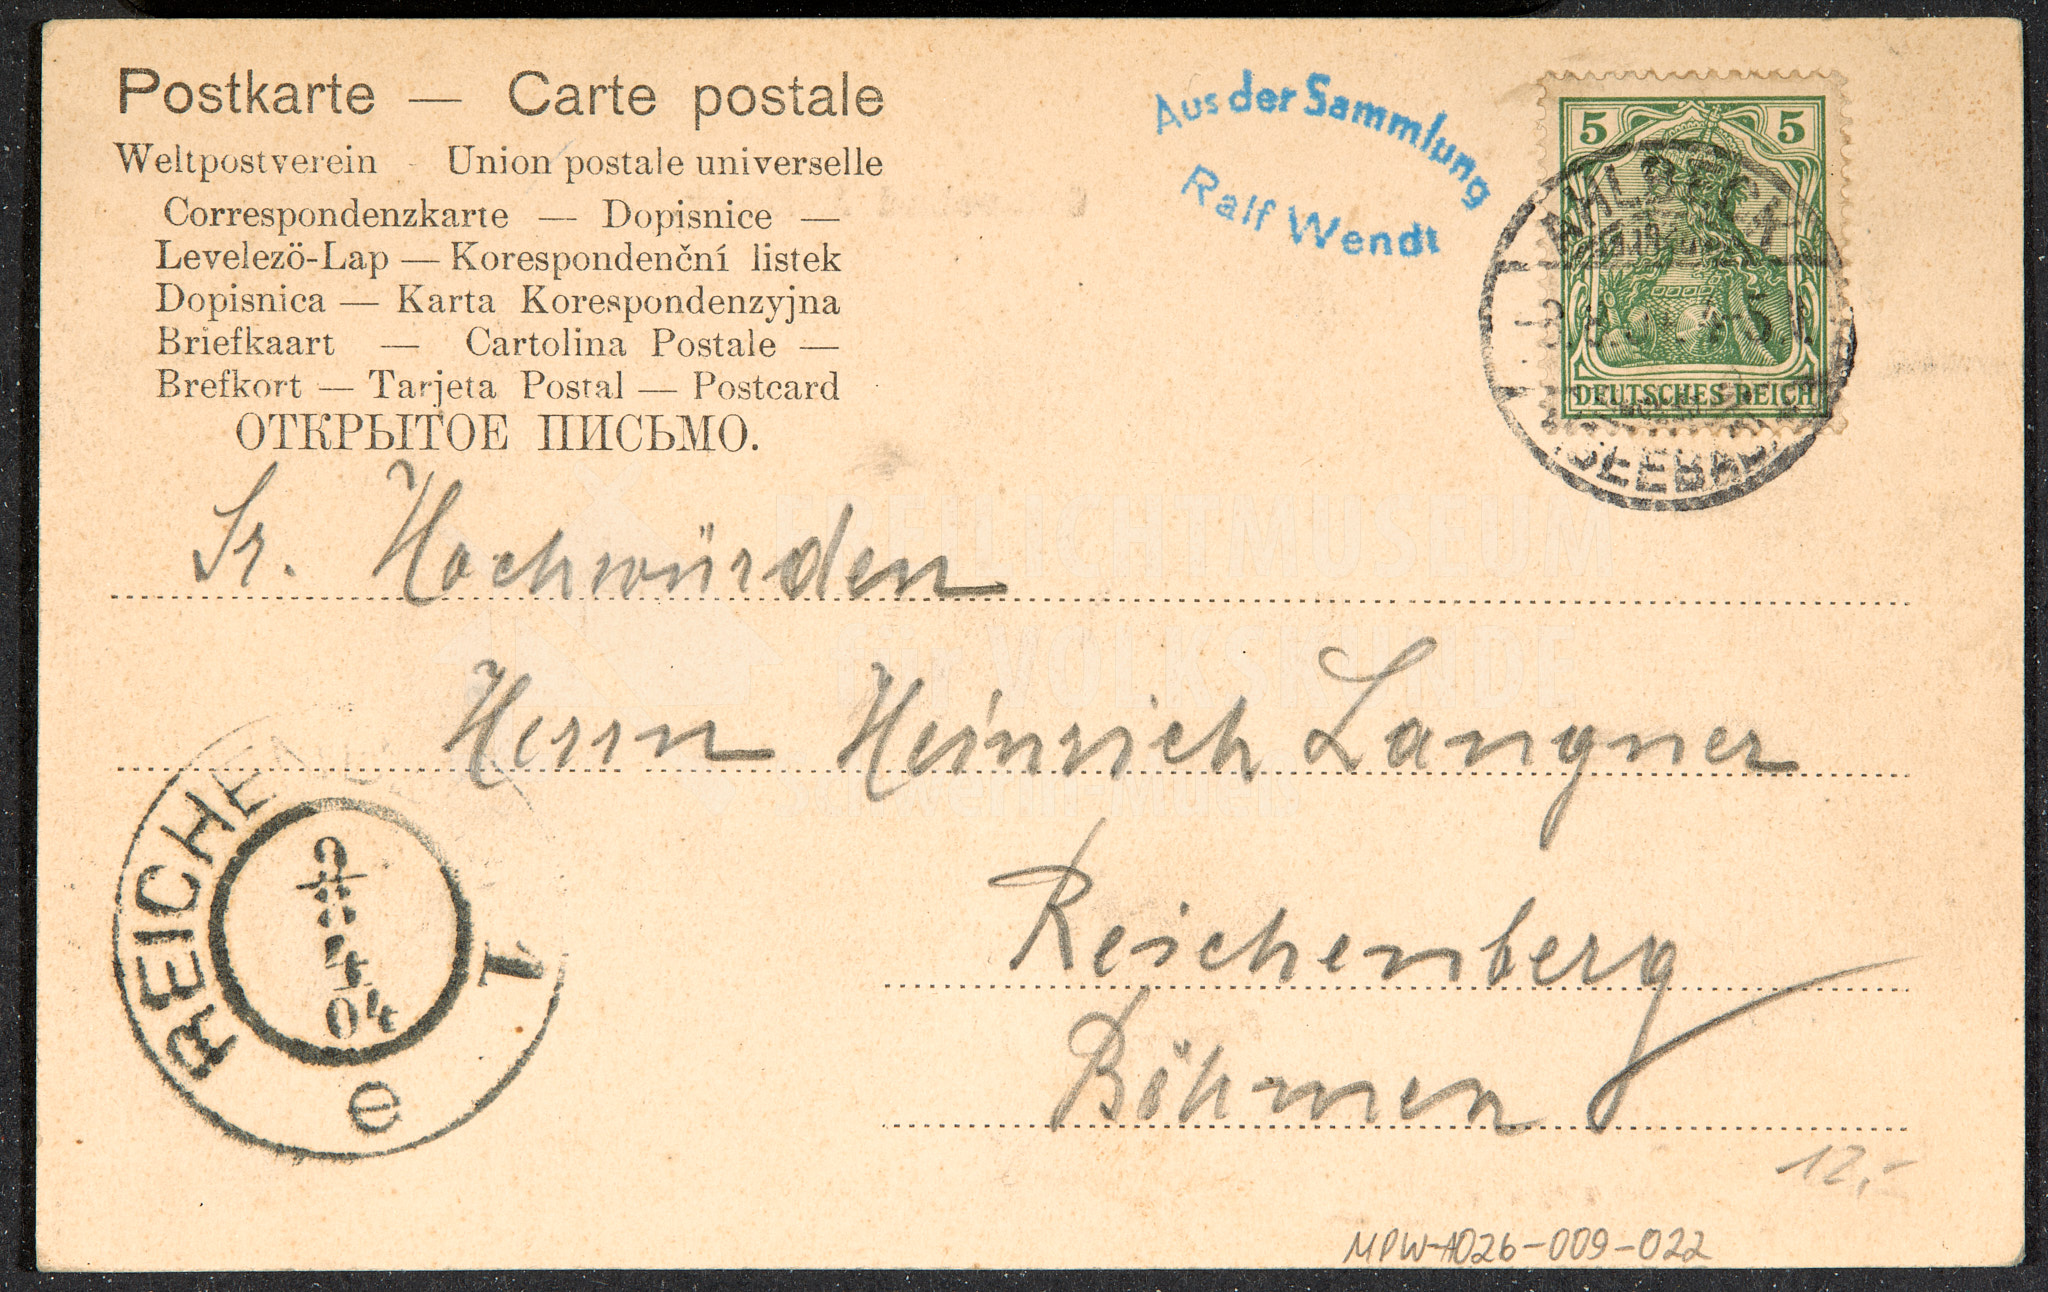 Postkarte — Carte postale
Weltpostverein - Union postale universelle
Correspondenzkarte — Dopisnice —
Levelezö-Lap — Korespondenční listek
Dopisnica — Karta Korespondenzyjna
Briefkaart — Cartolina Postale —
Brefkort — Tarjeta Postal — Postcard
ОТКРЫТОЕ ПИСЬМО.
Aus der Sammlung
Ralf Wendt
5 5
DEUTSCHES REICH
AHLBECK
SEEBAD
Sr. Hochwürden
Herrn Heinrich Langner
Reichenberg
Böhmen
REICHEN
1
4
04
12,-
MPW-A026-009-022
FREILICHTMUSEUM
für VOLKSKUNDE
Schwerin-Mueß